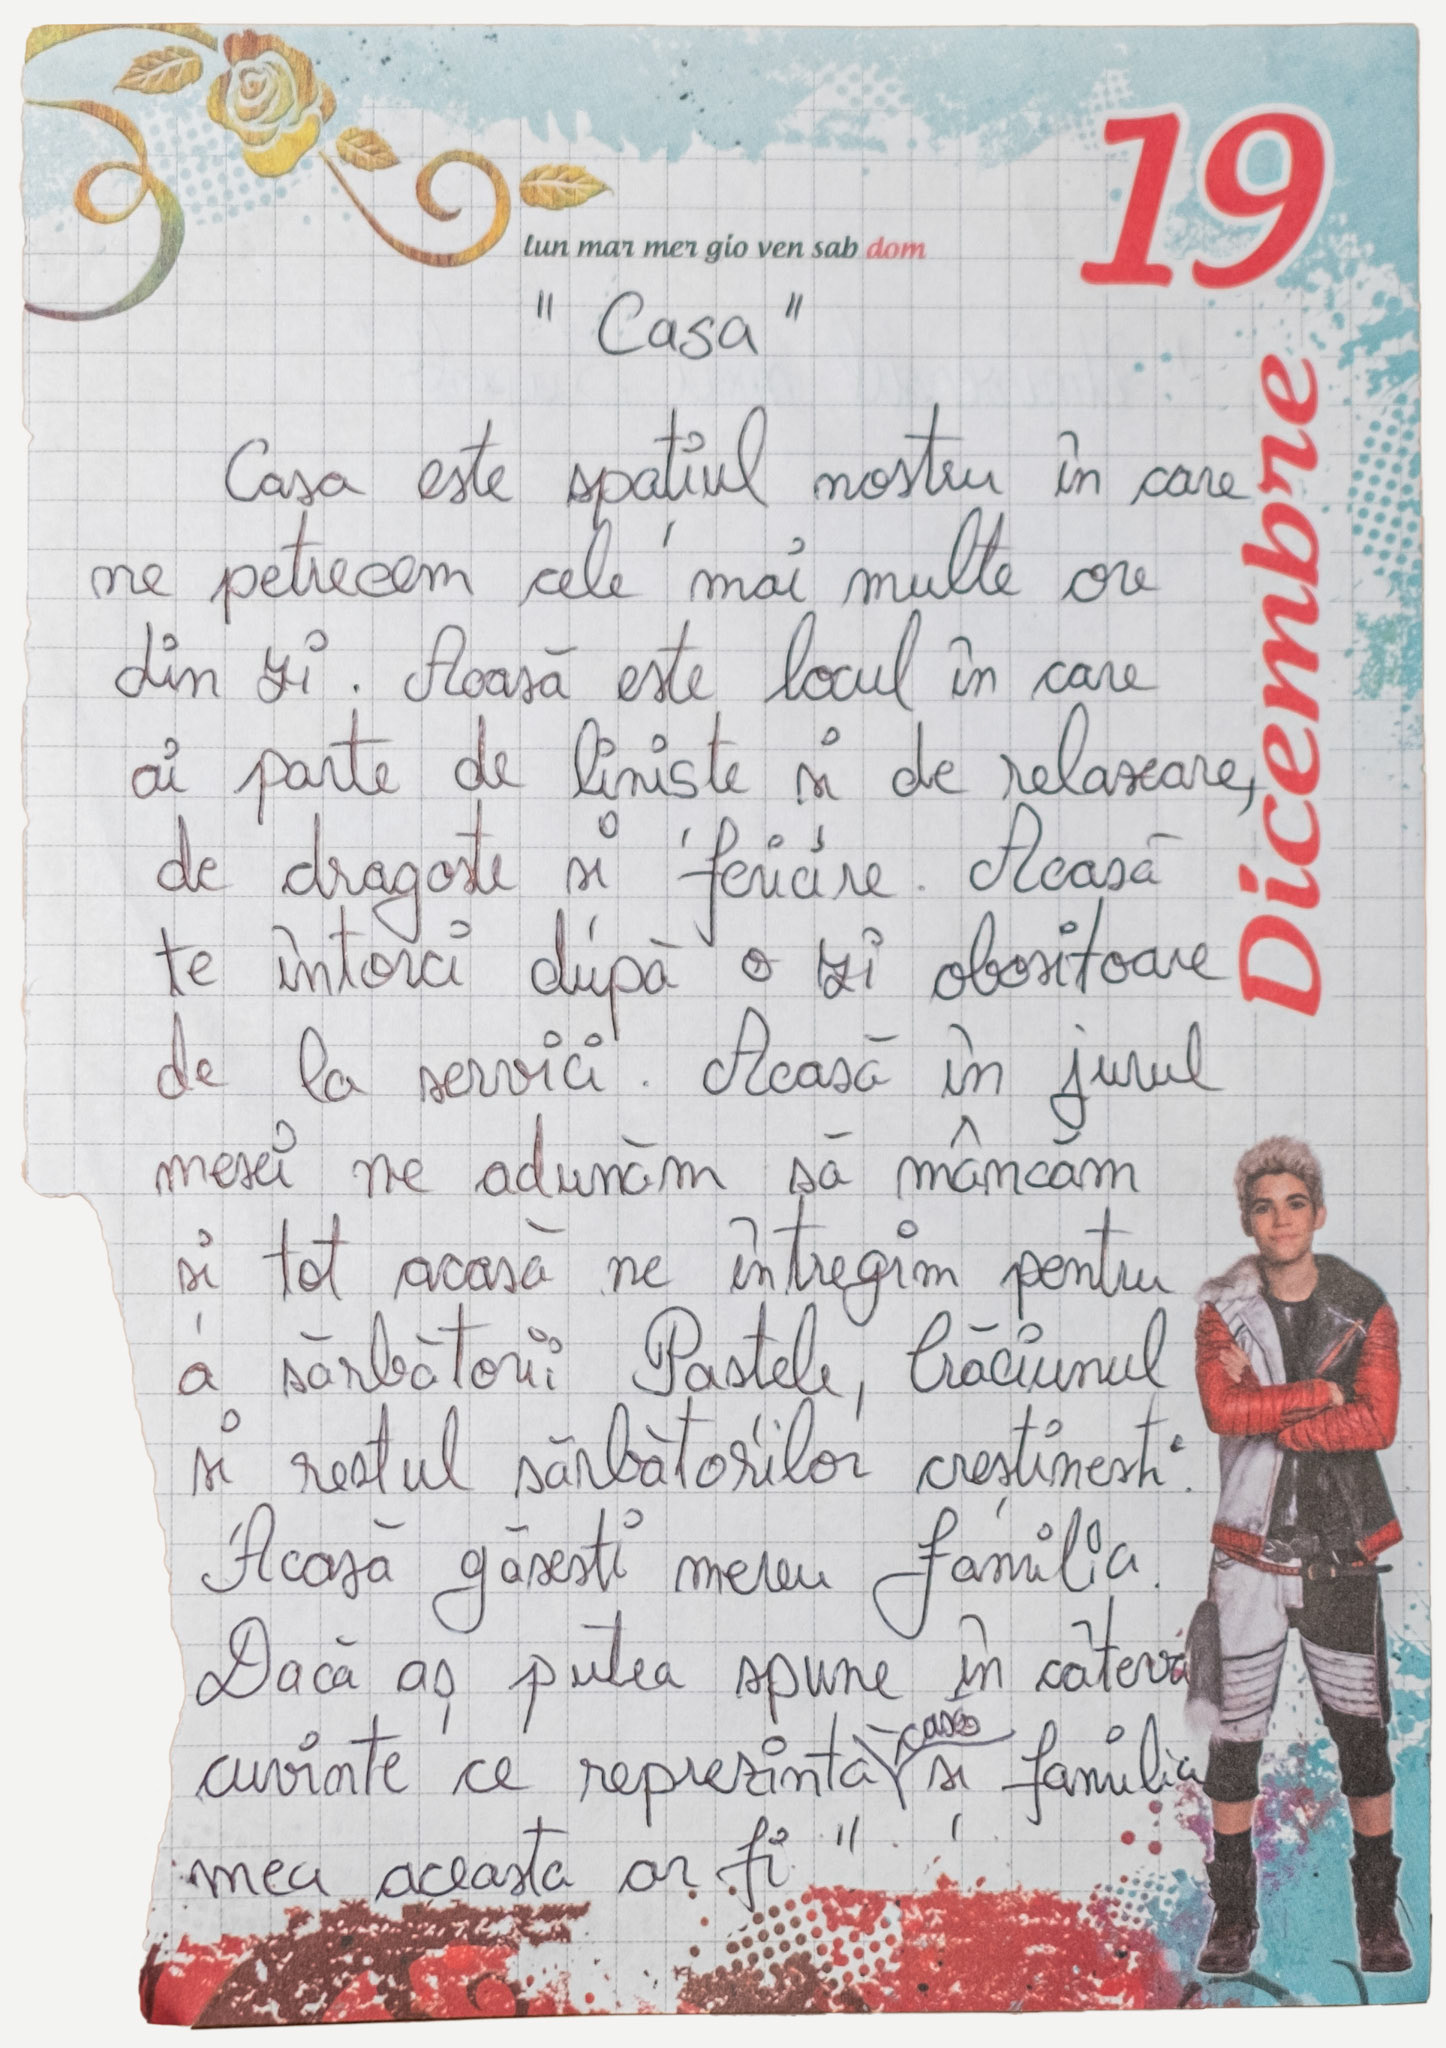 19
lun mar mer gio ven sab dom
Dicembre
"Casa"
Casa este spațiul nostru în care
ne petrecem cele mai multe ore
din zi. Acasă este locul în care
ai parte de liniște și de relaxare,
de dragoste și fericire. Acasă
te întorci după o zi obositoare
de la servici. Acasă în jurul
mesei ne adunăm să mâncăm
și tot acasă ne întregim pentru
a sărbătorii Paștele, Crăciunul
și restul sărbătorilor creștinești.
Acasă găsești mereu familia.
Dacă aș putea spune în câteva
casa
cuvinte ce reprezintă și familia
mea aceasta ar fi "